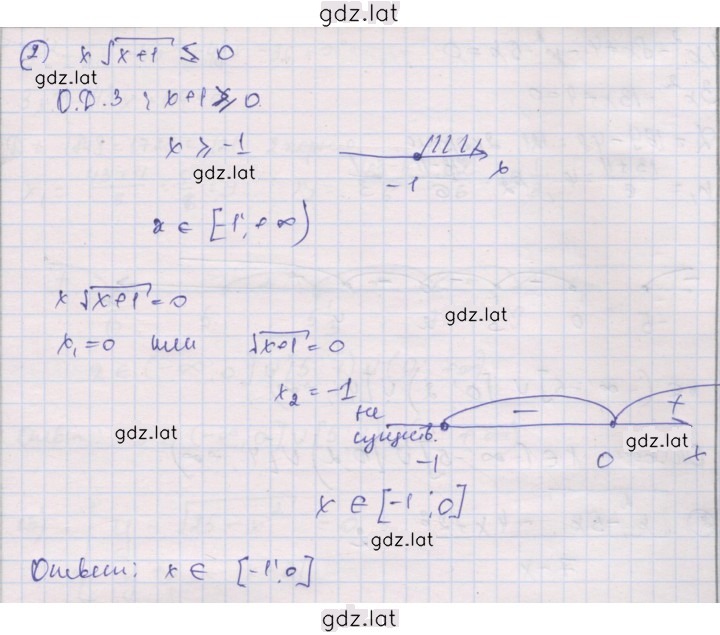 gdz.lat
2) x √(x+1) ≤ 0
gdz.lat
О.Д.З : x+1 ≥ 0
x ≥ -1
gdz.lat
-1 x
x ∈ [-1; +∞)
x √(x+1) = 0
gdz.lat
x₁ = 0 или √(x+1) = 0
x₂ = -1
не
сущеcтв.
- +
gdz.lat
gdz.lat
-1 0 x
x ∈ [-1 ; 0]
gdz.lat
Ответ: x ∈ [-1; 0]
gdz.lat